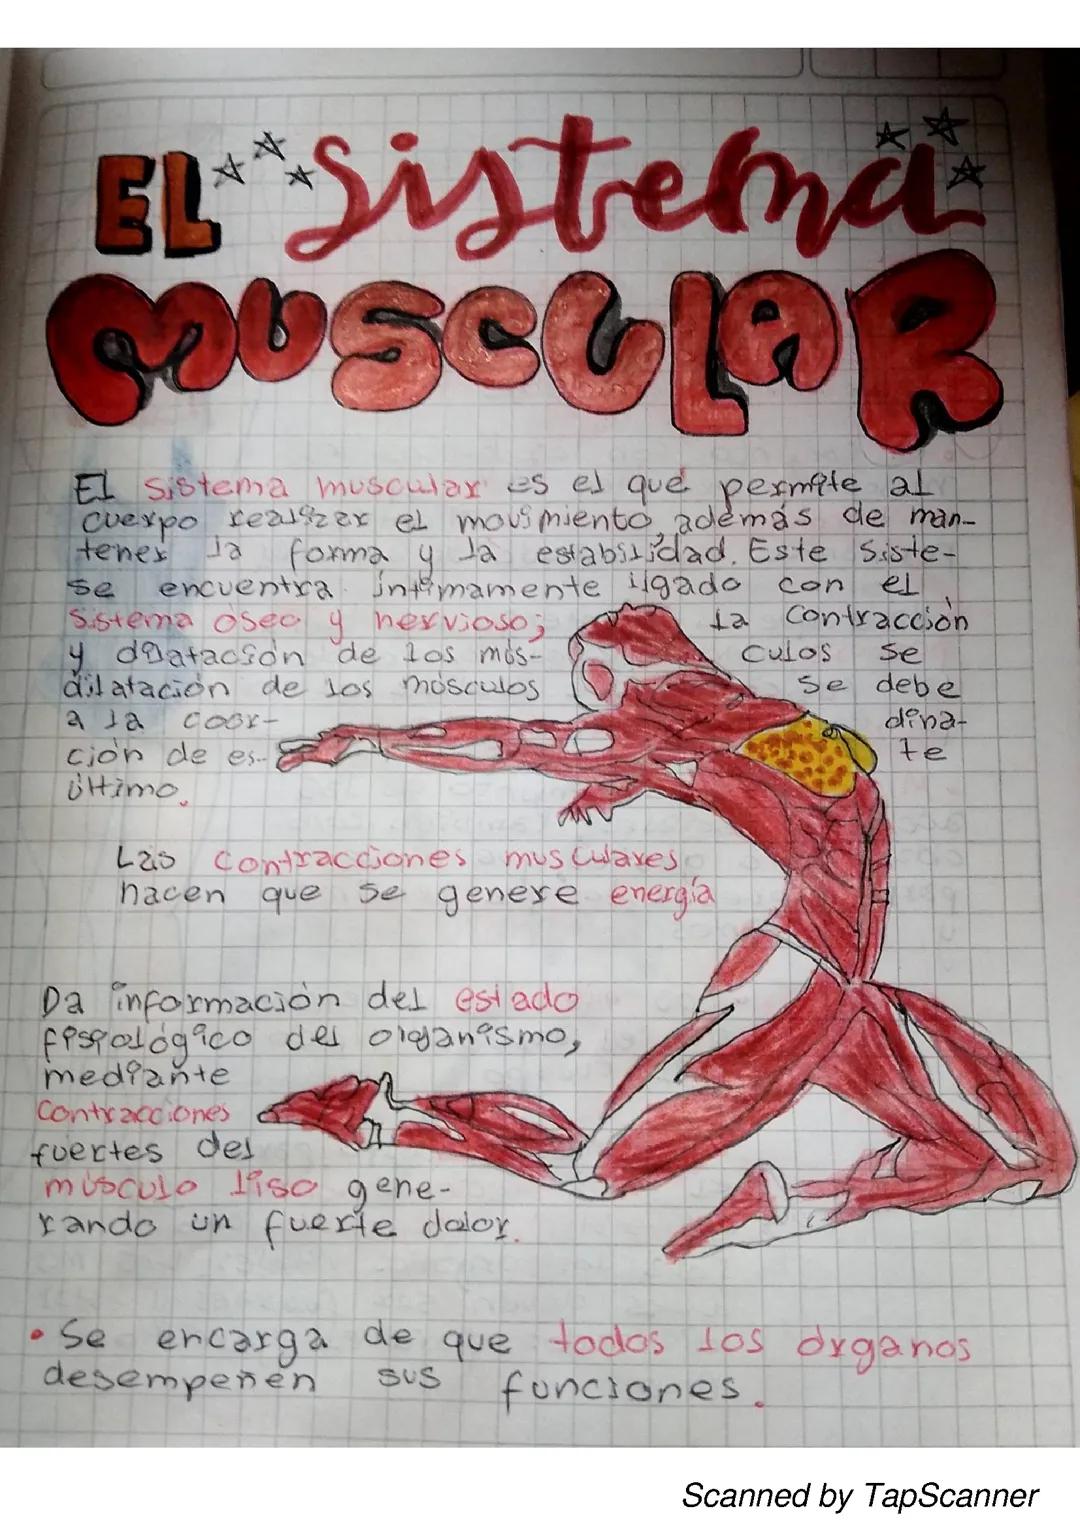 EL Sistema
MUSCULAR
El sistema muscular es el que permite al
cuerpo realizar el movimiento, además de man-
tener la forma y la estabilidad. Este siste-
se encuentra intimamente ligado con el
Sistema óseo y nervioso; la contracción
y dilatación de los mús- culos se
dilatación de los músculos se debe
a la coor- dina-
ción de es- te
último.
Las contracciones musculares,
hacen que se genere energía
Da información del estado
fisiológico del organismo,
mediante
contracciones
fuertes del
músculo liso gene-
rando un fuerte dolor.
• Se encarga de que todos los órganos
desempeñen sus funciones.
Scanned by TapScanner